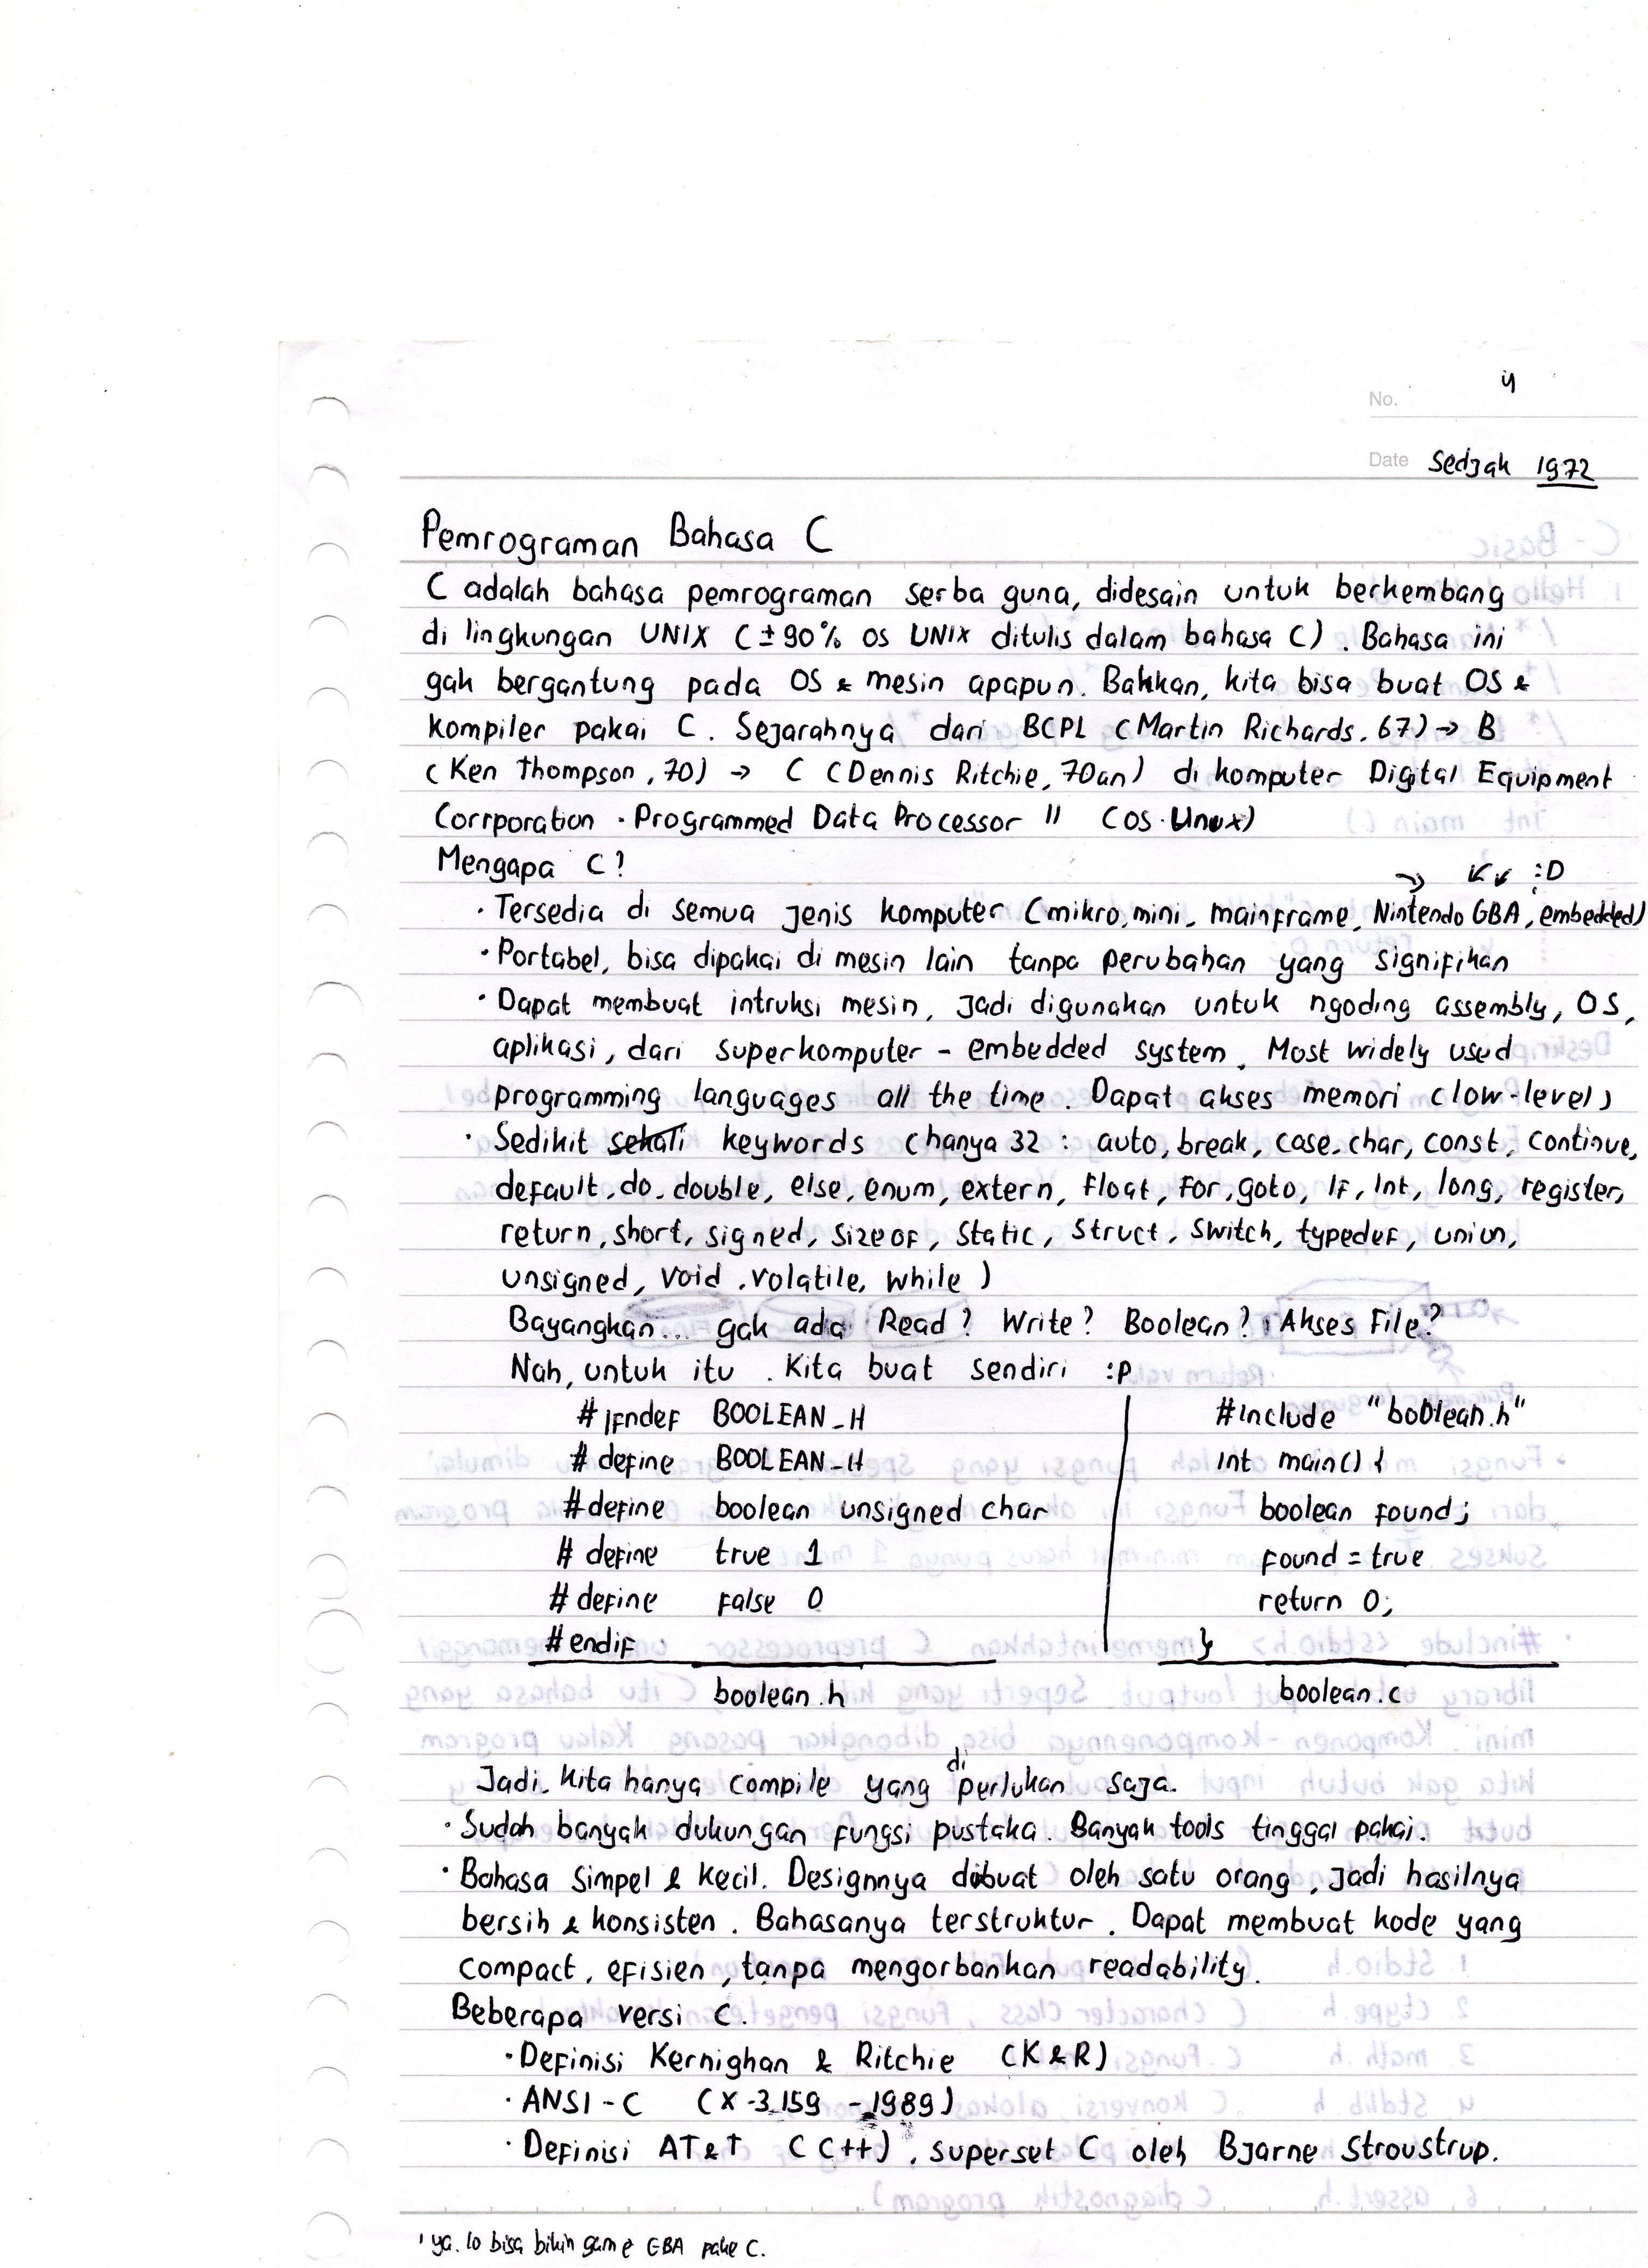 No. 4
Date Sedjak 1972
Pemrograman Bahasa C
C adalah bahasa pemrograman serba guna, didesain untuk berkembang
di lingkungan UNIX (±90% OS UNIX ditulis dalam bahasa C). Bahasa ini
gak bergantung pada OS & mesin apapun. Bahkan, kita bisa buat OS &
kompiler pakai C. Sejarahnya dari BCPL (Martin Richards, 67) → B
(Ken Thompson, 70) → C (Dennis Ritchie, 70an) di komputer Digital Equipment
Corrporation. Programmed Data Processor 11 (OS. Unux)
Mengapa C?
:D
· Tersedia di semua jenis komputer (mikro, mini, mainframe, Nintendo GBA, embedded)
· Portabel, bisa dipakai di mesin lain tanpa perubahan yang signifikan
· Dapat membuat intruksi mesin, jadi digunakan untuk ngoding assembly, OS,
aplikasi, dari superkomputer - embedded system. Most widely used
programming languages all the time. Dapat akses memori (low-level)
· Sedikit sekali keywords (hanya 32 : auto, break, case, char, const, continue,
default, do, double, else, enum, extern, float, for, goto, if, int, long, register,
return, short, signed, sizeof, static, struct, switch, typedef, union,
unsigned, void, volatile, while )
Bayangkan... gak ada Read? Write? Boolean? Akses File?
Nah, untuk itu. Kita buat sendiri :p
#ifndef BOOLEAN_H
#define BOOLEAN_H
#define boolean unsigned char
# define true 1
# define false 0
#endif
boolean.h
#include "boolean.h"
int main() {
boolean found;
found = true
return 0;
}
boolean.c
Jadi, kita hanya compile yang diperlukan saja.
· Sudah banyak dukungan fungsi pustaka. Banyak tools tinggal pakai.
· Bahasa simpel & kecil. Designnya dibuat oleh satu orang, jadi hasilnya
bersih & konsisten. Bahasanya terstruktur. Dapat membuat kode yang
compact, efisien, tanpa mengorbankan readability.
Beberapa versi C.
· Definisi Kernighan & Ritchie (K&R)
· ANSI-C (X-3.159 - 1989)
· Definisi AT&T (C++), superset C oleh Bjarne Stroustrup.
¹ ya. lo bisa bikin game GBA pake C.